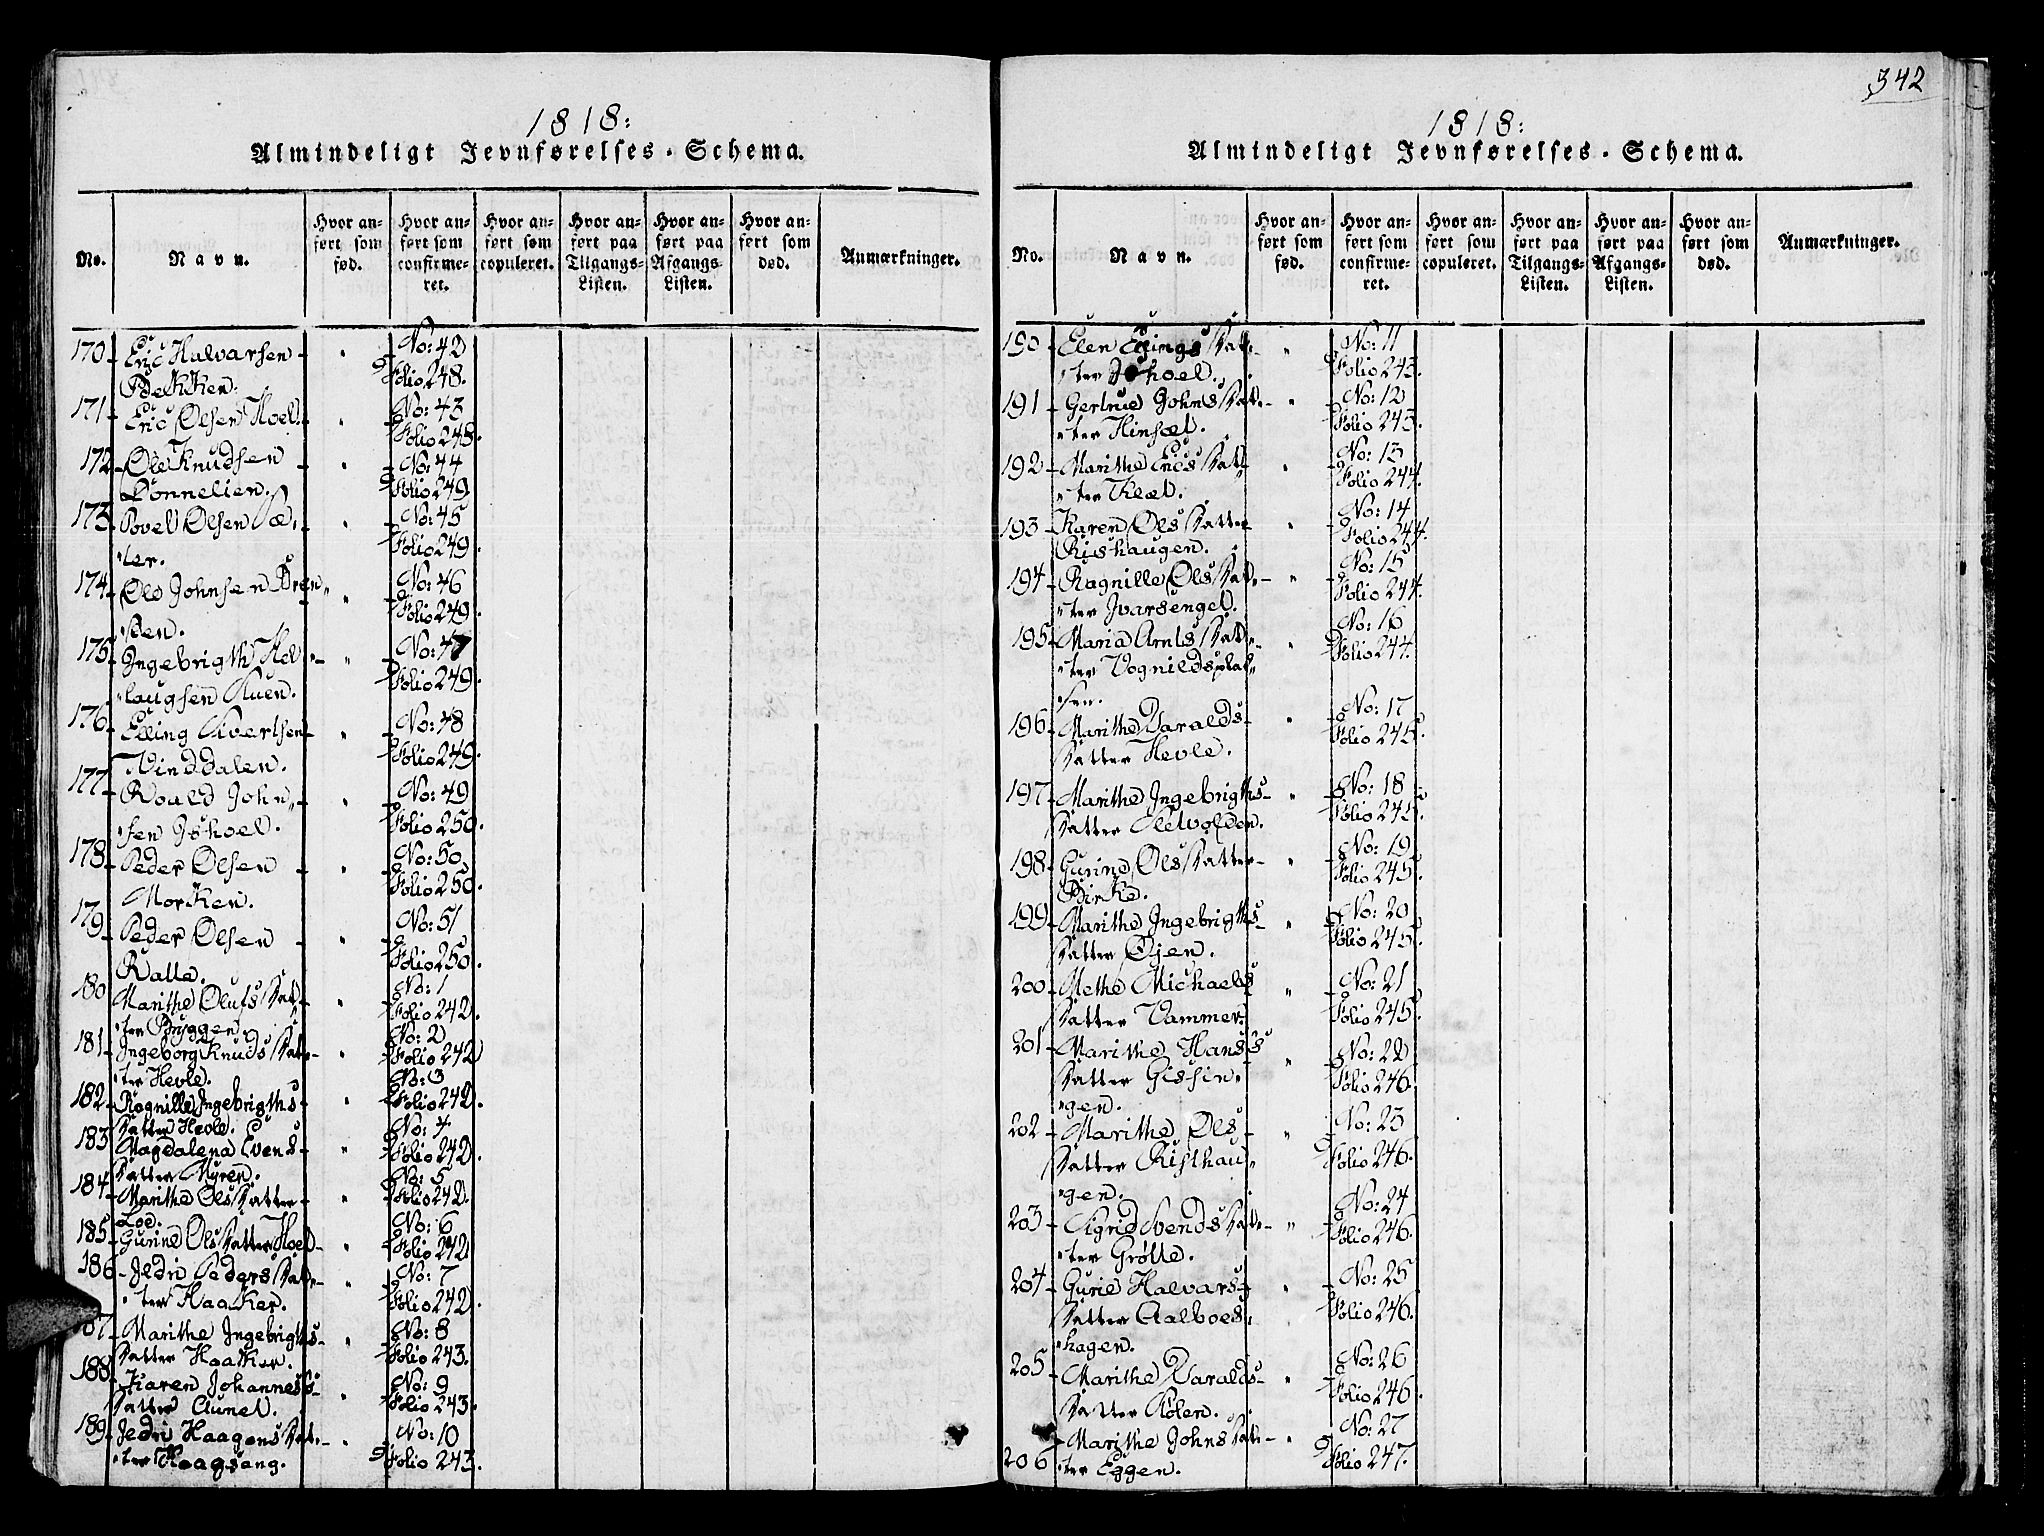 1818:
Almindeligt Jevnførelses-Schema.
No.
Navn.
Hvor anført som fød.
Hvor anført som confirmeret.
Hvor anført som copuleret.
Hvor anført paa Tilgangs-Listen.
Hvor anført paa Afgangs-Listen.
Hvor anført som død.
Anmærkninger.
170 Eric Halvarsen No: 42
Bekken. Folio 248.
171 Eric Olsen Hoel. No: 43
Folio 248.
172 Ole Knudsen No: 44
Folio 249
173 Povel Olsen Sæ„ No: 45
„ter. Folio 249.
174 Ole Johnsen Bren„ No: 46
„den. Folio 249.
175 Ingebrigth Hel„ No: 47
„laugsen Folio 249.
176 Elling Sivertsen No: 48
Vinddalen. Folio 249.
177 Roald John„ No: 49
sen Ishoel. Folio 250.
178 Peder Olsen No: 50
Morken. Folio 250.
179 Peder Olsen No: 51
Folio 250.
180 Marithe Olufs Dat„ No: 1
„ter Byggen. Folio 242.
181 Ingeborg Knuds Dat„ No: 2
„ter Hevle. Folio 242
182 Ragnille Ingebrigths No: 3
Datter Hevle. Folio 242.
183 Magdalena Evens No: 4
Datter Myren. Folio 242.
184 Marithe Ols Datter No: 5
Loe. Folio 242.
185 Gurine Ols Datter Hoel No: 6
Folio 242
186 Jedri Peders Dat„ No: 7
„ter Haaker. Folio 242.
187 Marithe Ingebrigths No: 8
Datter Haaker. Folio 243.
188 Karen Johannes No: 9
Datter Aunet. Folio 243.
189 Jedri Haagens Dat„ No: 10
„ter Haagsang. Folio 243.
342
1818:
Almindeligt Jevnførelses-Schema.
No.
Navn.
Hvor anført som fød.
Hvor anført som confirmeret.
Hvor anført som copuleret.
Hvor anført paa Tilgangs-Listen.
Hvor anført paa Afgangs-Listen.
Hvor anført som død.
Anmærkninger.
190 Elen Ellings Dat„ No: 11
„ter Folio 243.
191 Gertrue Johns Dat„ No: 12
„ter Folio 243.
192 Marithe Erics Dat„ No: 13
„ter Folio 244.
193 Karen Ols Datter No: 14
Rishaugen. Folio 244.
194 Ragnille Ols Dat„ No: 15
„ter Ivarsenget. Folio 244.
195 Maria Arnts Dat„ No: 16
„ter Vognildsplad„ Folio 244.
„sen.
196 Marithe Haralds No: 17
Datter Hevle. Folio 245.
197 Marithe Ingebrigths No: 18
Datter Sletvolden. Folio 245.
198 Gurine Ols Datter No: 19
Birke. Folio 245.
199 Marithe Ingebrigths No: 20
Datter Øien. Folio 245.
200 Methe Michaels No: 21
Datter Vammer. Folio 245.
201 Marithe Hans No: 22
Datter Gissin„ Folio 246.
„gen.
202 Marithe Ols No: 23
Datter Risthau„ Folio 246.
„gen.
203 Sigrid Svends Dat„ No: 24
„ter Grötte. Folio 246.
204 Gurie Halvars No: 25
Datter Aalboes„ Folio 246.
„hagen.
205 Marithe Haralds No: 26
Datter Rölen. Folio 246.
206 Marithe Johns Dat„ No: 27
„ter Eggen. Folio 247.